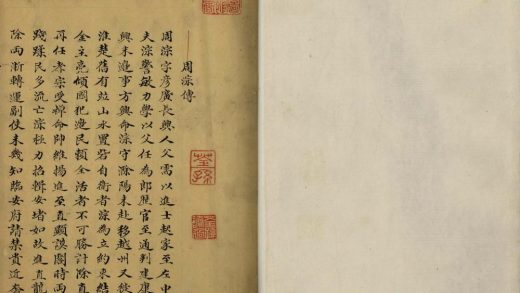 周淙傳
周淙字彥廣長興人父需以進士起家至左中
夫淙警敏力學以父任為郎歷官至通判建康
興末邊事方興命淙守滁陽未赴移越州又徙
淮楚舊有並山水置砦自衛者淙為立約束結
金主亮傾國犯邊民賴全活者不可勝計除直
再任孝宗受禪命帥維揚進至直顯謨閣時兩
踐蹂民多流亡淙極力招輯安堵如故進直龍
除兩浙轉運副使未幾知臨安府請禁貴近奢
荃孫